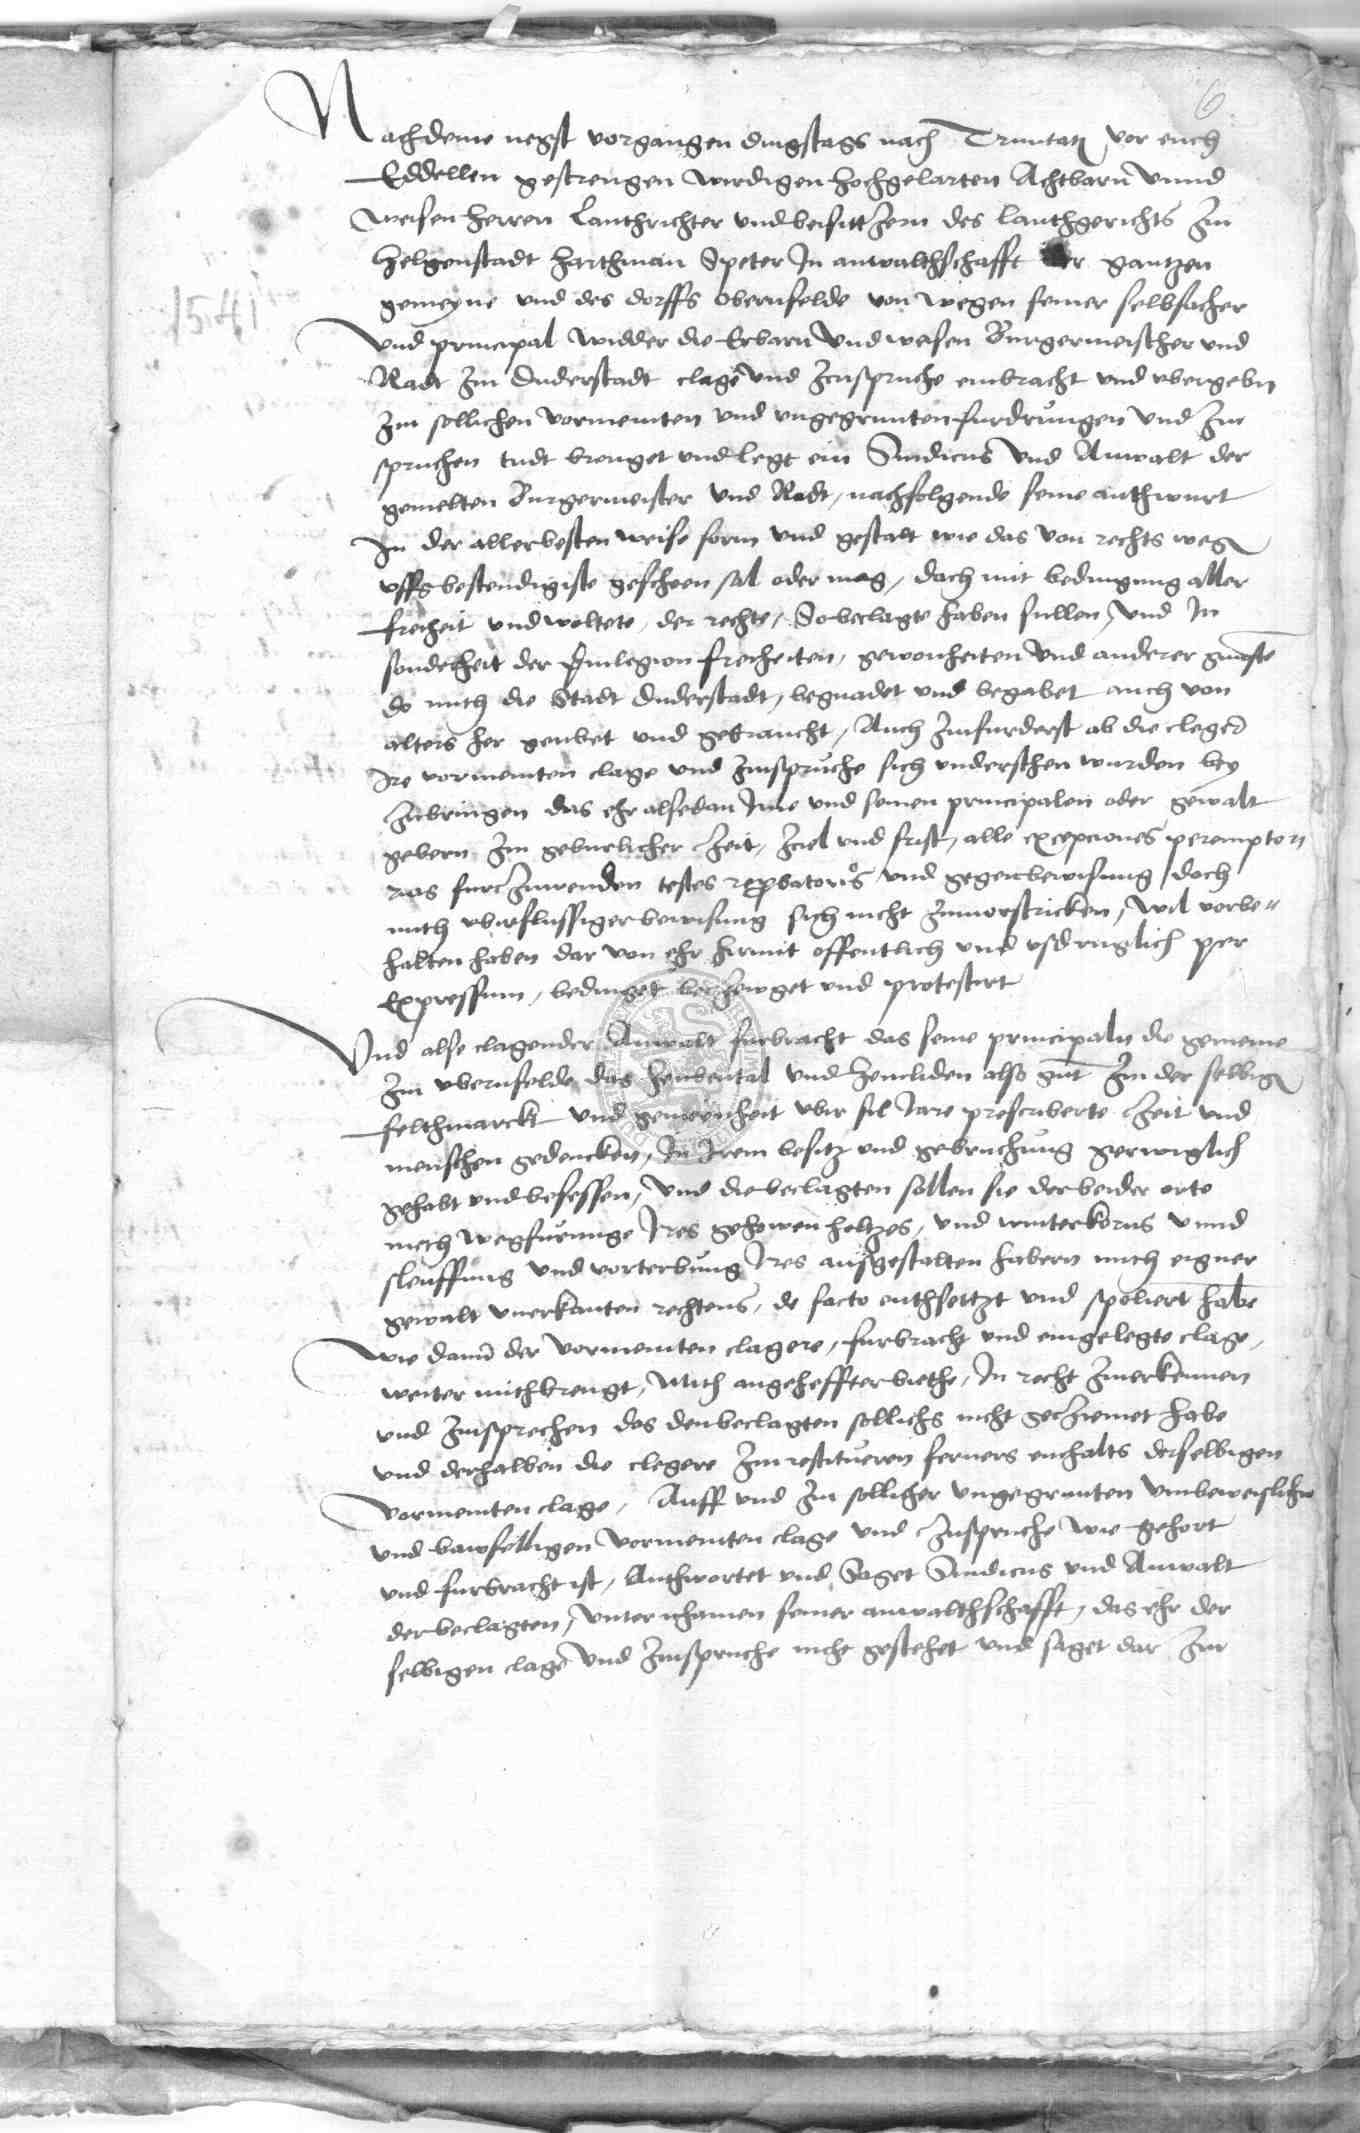 6
Nachdeme negst vorgangen dingstags nach Trinitatis vor euch
Eddellen gestrengen wirdigen hochgelarten Achtbarn unnd
weisen herren Lanthrichter und beisittzern des lanthgerichts zu
helgenstadt harthman Speter In anwalthschafft der gantzen
gemeyne und des dorffs obernfelde von wegen seiner selbsacher
und principal widder die Erbarn und weisen Burgermeischer und
Radt zu Duderstadt clage und zuspruche einbracht und ubergebn
zu sollichen vormeinten und ungegrunten furdrungen und zu
spruchen tudt brenget und legt ein Sindicus und Anwalt der
gemelten Burgermeister und Radt, nachfolgende seine anthwurt
In der allerbesten weise form und gestalt wie das von rechts weg
uffs bestendigiste gescheen sal oder mag, doch mit bedingung aller
freiheit und woltete, der rechte, So beclagte haben sullen, und In
sonderheit der privilegion freiheiten, gewonheiten und anderer gunste
do mith die Stadt duderstadt, begnadet und begabet auch von
alters her geubet und gebraucht, Auch zufurderst ab die cleger
Ire vormeinten clage und zuspruche sich understhen wurden bey
zubringen das ehr alsedan Ime und seinen principalen oder gewalt
gebern zu geburlicher zeit, ziel und frist, alle excepciones perempto
rias furzuwenden testes reprobatorios und gegenbewisung doch
mith ubirflussiger bewisung sich nicht zuvorstricken, wil vorbe
halten haben dar von ehr hirmit offentlich und usdruglich per
Expressum, bedinget bezewget und protestirt
Und alse clagender Anwalt furbracht das seine principaln die gemeine
zu obernfelde das und also gut zu der selbig
felthmarck und gemeynheit ubir sil Jare prescriberte zeit und
menschen gedencken, In Irem besitz und gebruchung gerwiglich
gehabt und besessen, und die beclagten sollen sie der beider orte
mith wegfurunge Ires gehowen holtzes, und winterkorns unnd
sleuffung und vorterbung Ires ausgestalten habern mith eigner
gewalt unerkanten rechtens, de facto enthsettzt und spoliert habe
Wie dann der vormeinten clagere, furbracht und eingelegte clage,
weiter mithbrengt, Mith angeheffter biethe, In recht zuerkennen
und zusprechen das den beclagten sollichs nicht geziemet habe
und derhalben die clegere zu restitueren ferners enhalts derselbigen
vormeinten clage, Auff und zu sollicher ungegrunten unbeweislicher
und bawfelligen vormeinten clage und zuspruche wie gehort
und furbracht ist, Anthwortet und Saget Sindicus und Anwalt
der beclagten, unter nhamen seiner anwalthschafft, das ehr der
selbigen clage und zuspruche nicht gestehet und saget dar zu